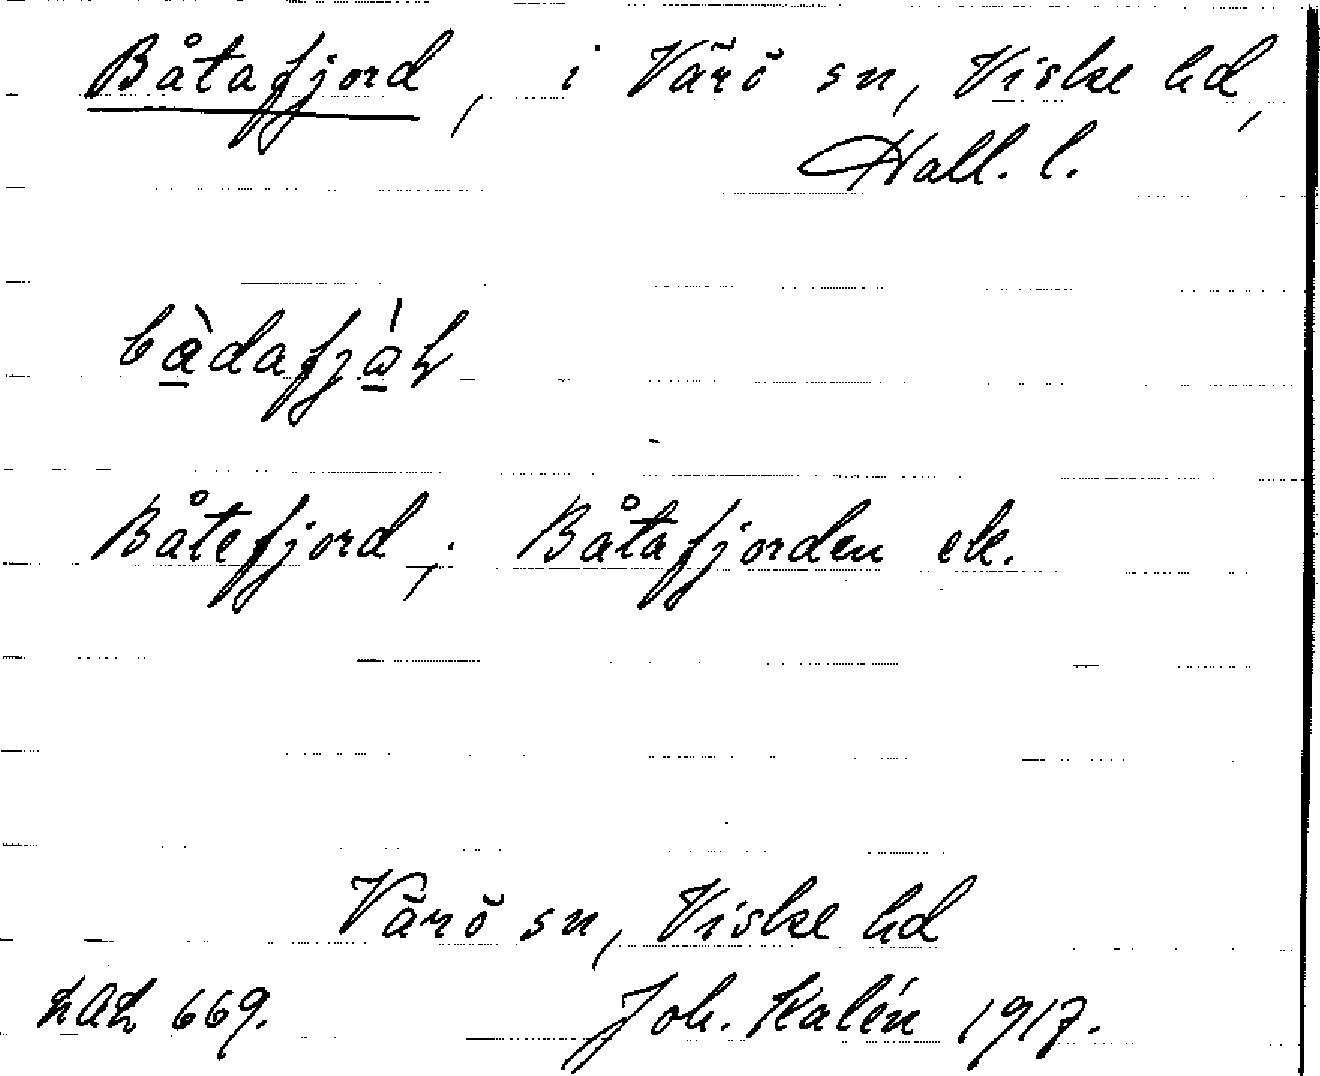 Båtafjord, i Värö sn, Viske hd,
Hall. l.
Båtefjord, Båtafjorden ek.
Värö sn, Viske hd
669. Joh. Kalén 1917.